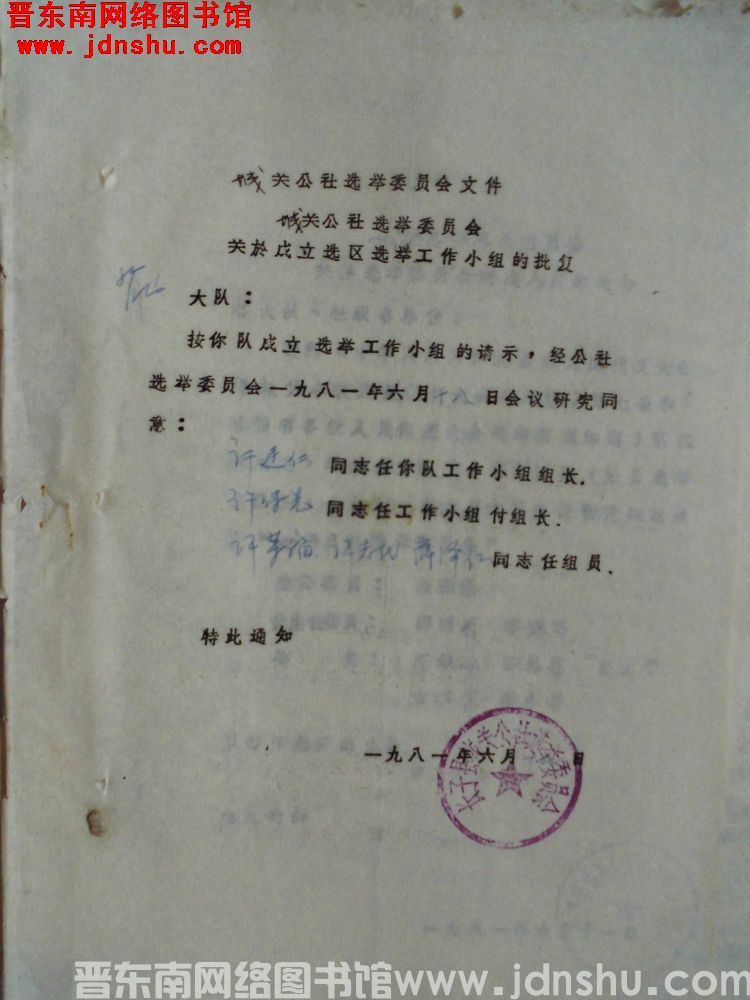 晋东南网络图书馆
www.jdnshu.com
城关公社选举委员会文件
城关公社选举委员会
关於成立选区选举工作小组的批复
大队：
按你队成立选举工作小组的请示，经公社
选举委员会一九八一年六月十八日会议研究同
意：
许建仁 同志任你队工作小组组长.
同志任工作小组付组长.
同志任组员.
特此通知
一九八一年六月 日
长子县城关公社选举委员会
晋东南网络图书馆www.jdnshu.com